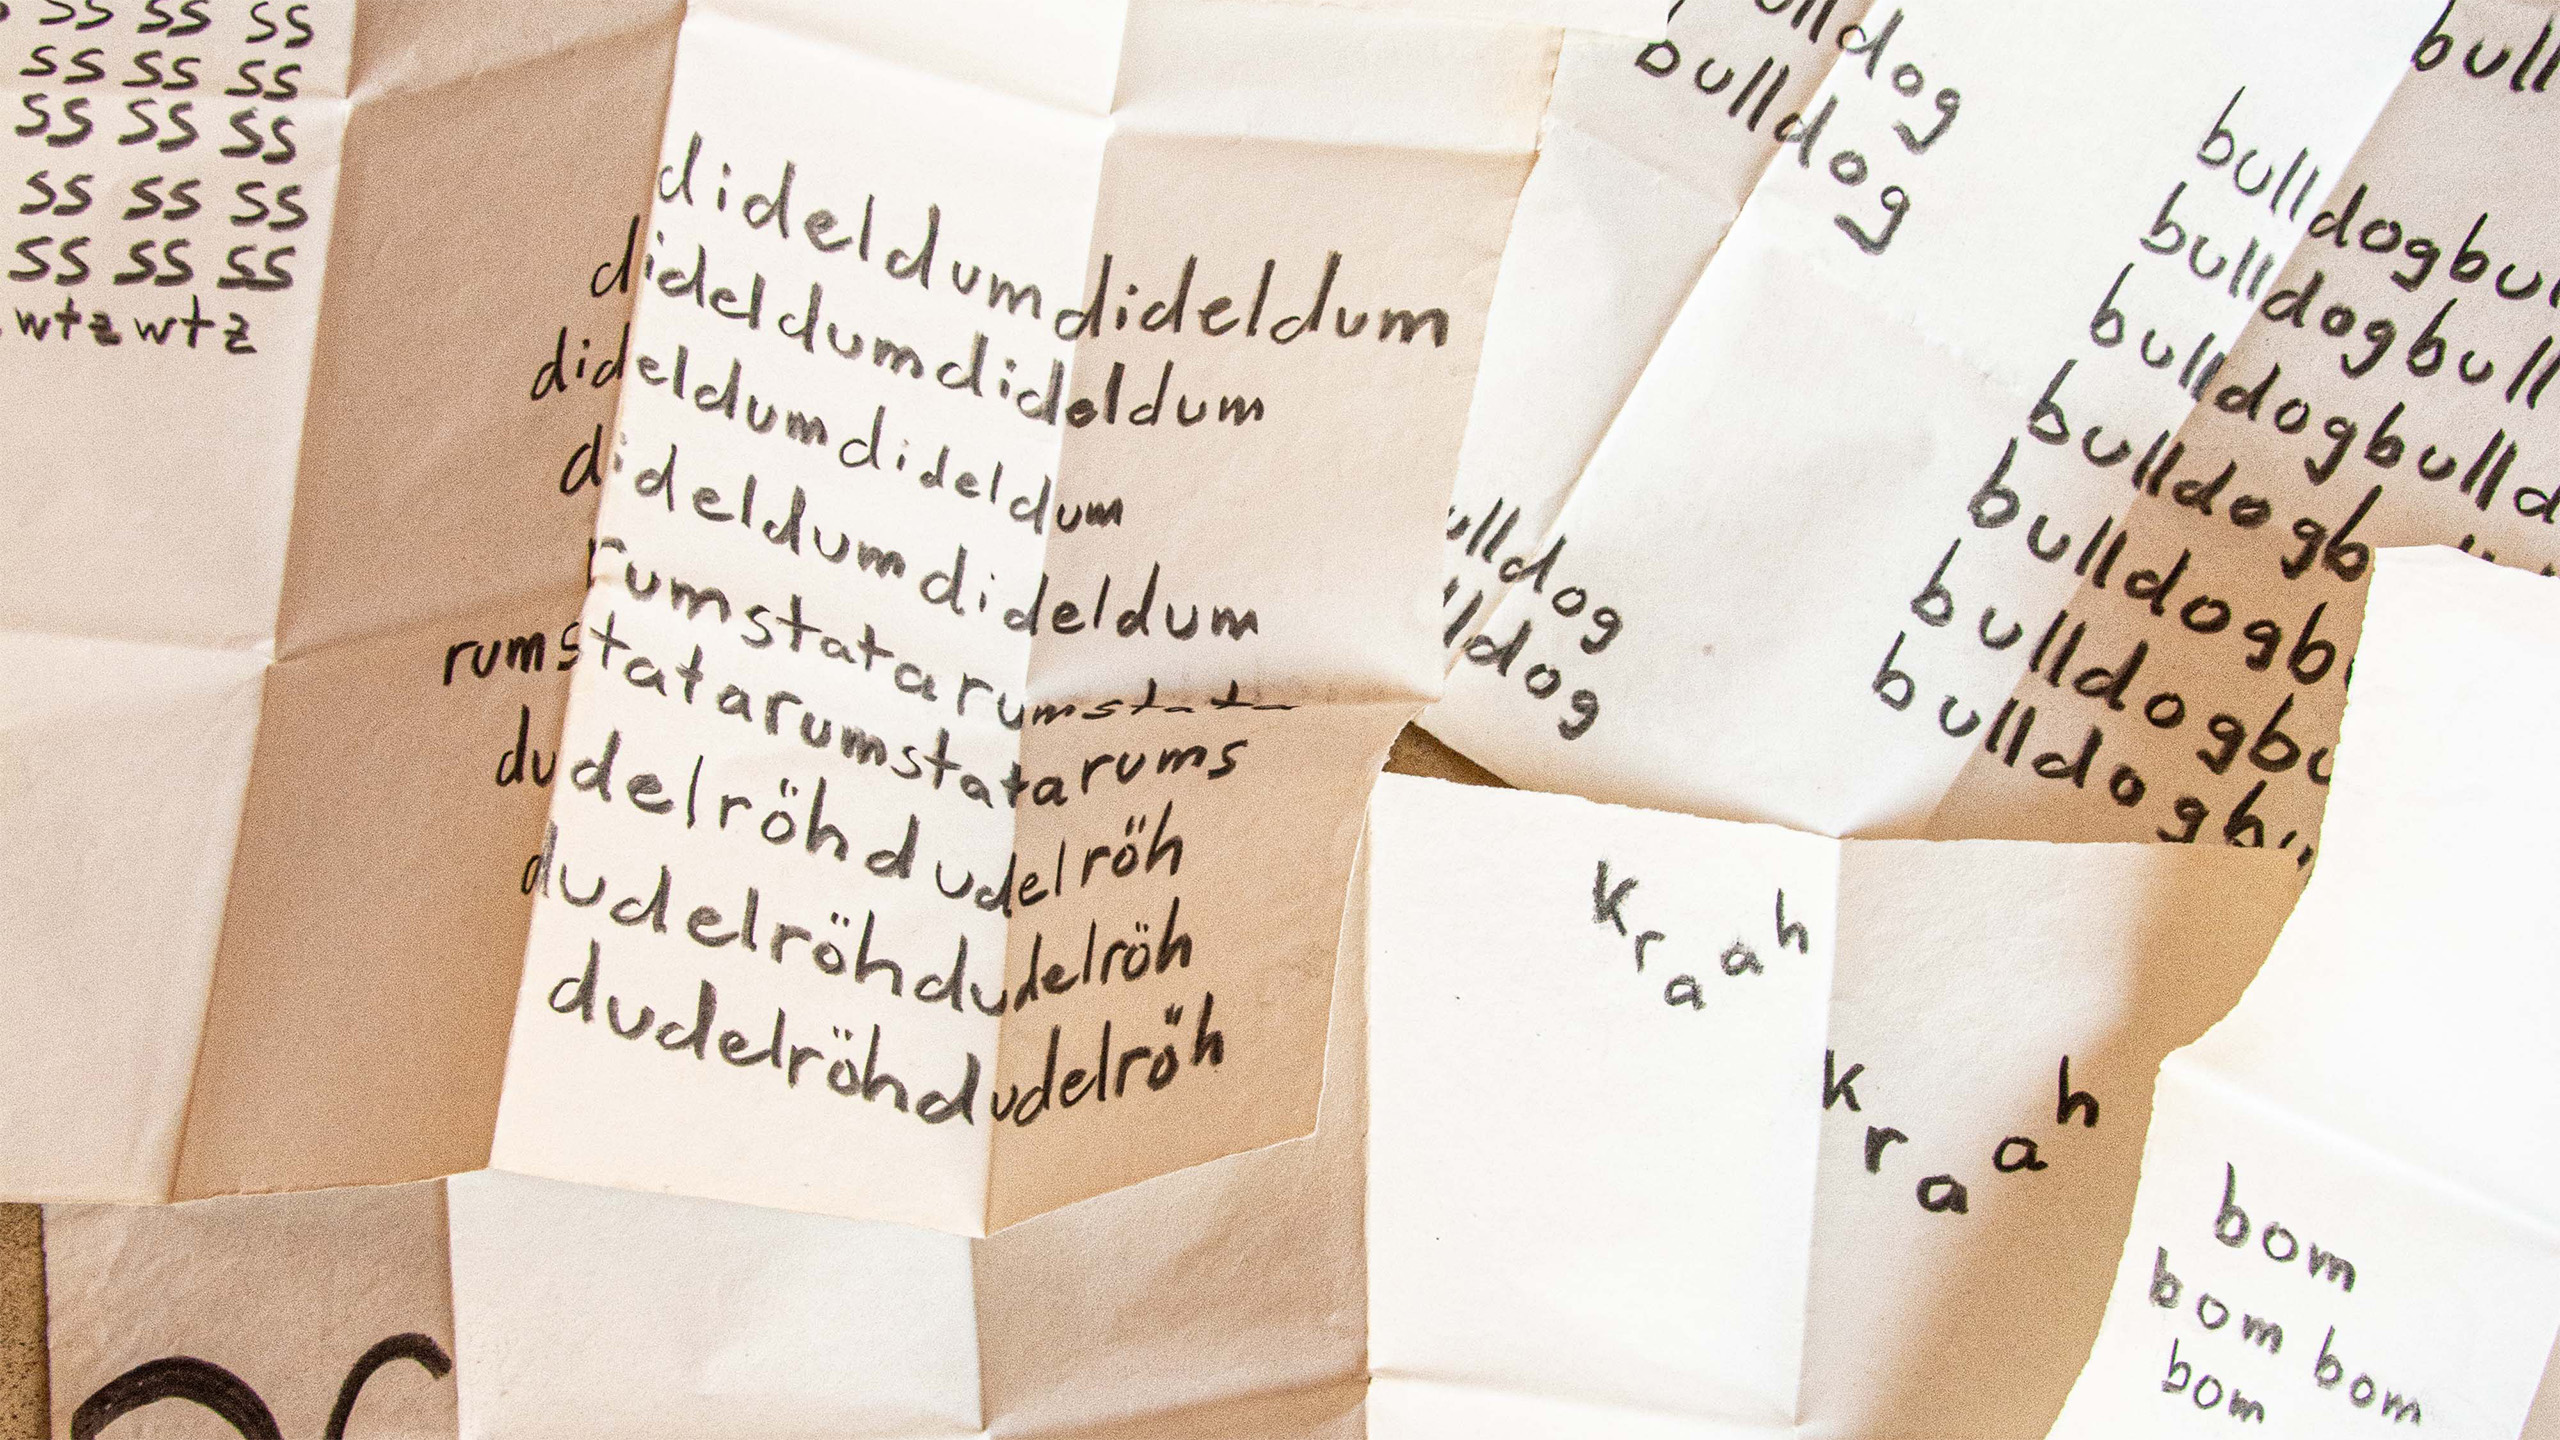 ss ss ss
ss ss ss
ss ss ss
ss ss ss
ss ss ss
wtz wtz
dideldumdideldum
dideldumdideldum
dideldumdideldum
dideldumdideldum
rumstatarumstata
rumstatarumstatarums
dudelröhdudelröh
dudelröhdudelröh
dudelröhdudelröh
lldog
bulldog
ulldog
lldog
bull
bulldogbu
bulldogbull
bulldogbulld
bulldogb
bulldogb
bulldogbu
bulldogbu
kraah
kraah
bom
bom bom
bom